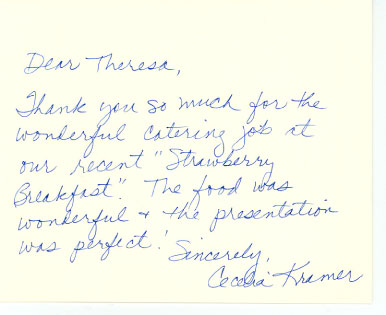 Dear Theresa,
Thank you so much for the
wonderful catering job at
our recent "Strawberry
Breakfast". The food was
wonderful + the presentation
was perfect! Sincerely,
Cecelia Kramer